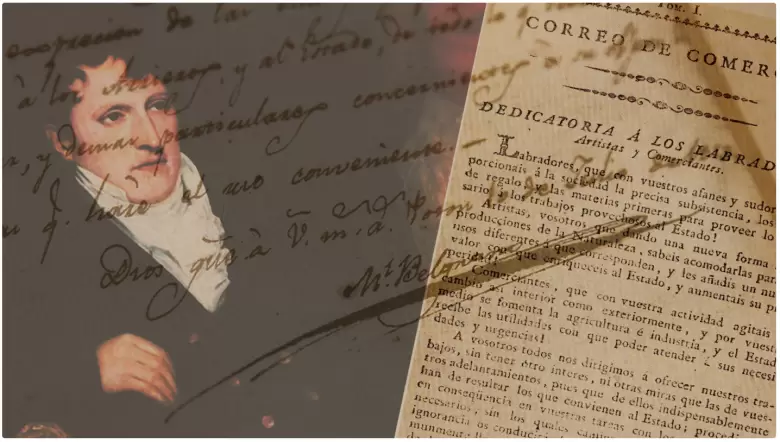 de las
à los y al Estado, de todo
y demas particulares concernientes a su
q.e haré el uso conveniente.—
Dios gũe à V. m. a.s
M.l Belgrano
TOM. I.
CORREO DE COMERC
DEDICATORIA Á LOS LABRAD
Artistas y Comerciantes.
Labradores, que con vuestros afanes y sudor
porcionais á la sociedad la precisa subsistencia, los
de regalo y las materias primeras para proveer lo
sario á los trabajos provechosos al Estado!
Artistas, vosotros que dando una nueva forma
producciones de la Naturaleza, sabeis acomodarlas para
usos diferentes á que corresponden, y les añadis un nu
valor con que enriqueceis al Estado, y aumentais su p
peridad!
Comerciantes, que con vuestra actividad agitais
cambio así interior como exteriormente, y por vuest
medio se fomenta la agricultura é industria, y el Estad
recibe las utilidades con que poder atender á sus necesi
dades y urgencias!
A vosotros todos nos dirigimos á ofrecer nuestros tra
bajos, sin tener otro interes, ni otras miras que las de vues-
tros adelantamientos, pues que de ellos indispensablemente
han de resultar los que convienen al Estado; procede
en conseqüencia en vuestras tareas con los
necesarios, sin los quales
ignorancia os conducirá